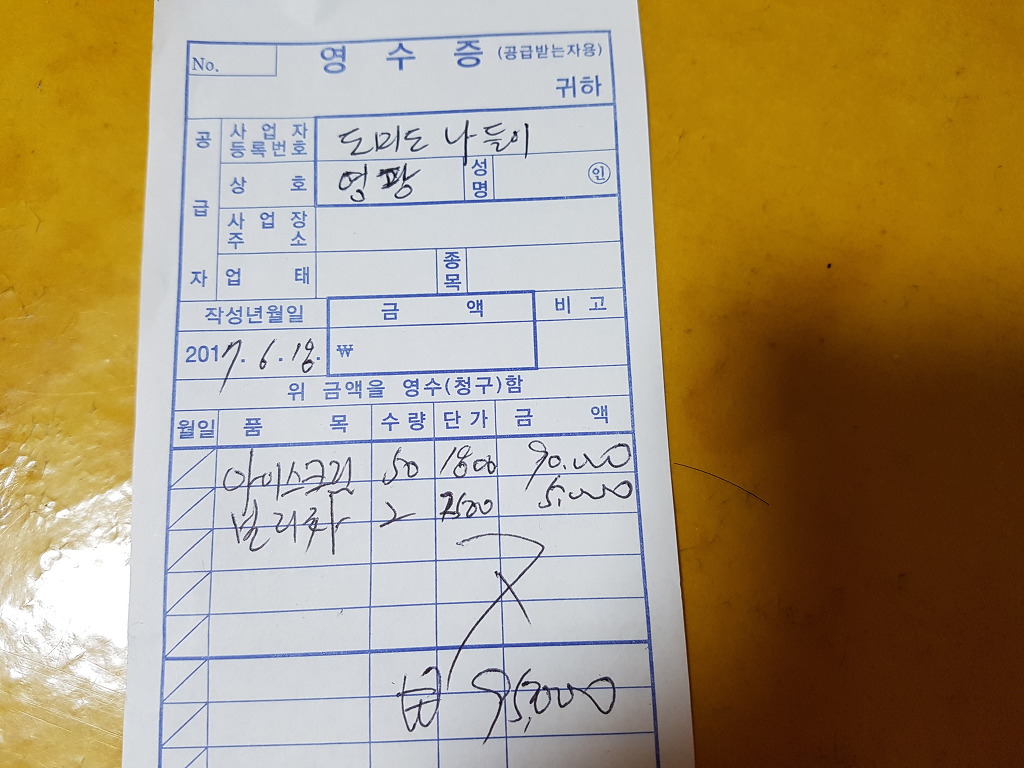 No. 영 수 증 (공급받는자용)
귀하
공 급 자
사 업 자 등록번호 도미도 나들이
상 호 영광 성명 ㊞
사 업 장 주 소
업 태 종목
작성년월일 금 액 비 고
2017. 6. 18. ₩
위 금액을 영수(청구)함
월일 품 목 수 량 단 가 금 액
아이스크림 50 1800 90.000
2 2500 5.000
₩ 95,000